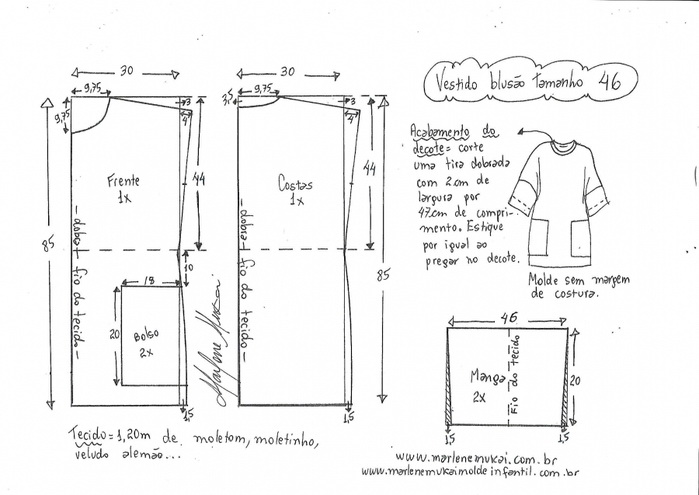 Vestido blusão tamanho 46
30
9,75
9,75
3
4
44
85
Frente
1x
- dobra - fio do tecido -
10
18
20
Bolso
2x
1,5
Marlene Mukai
30
3,5
9,75
3
4
44
85
Costas
1x
- dobra - fio do tecido -
1,5
Acabamento do
decote = corte
uma tira dobrada
com 2cm de
largura por
47cm de compri-
mento. Estique
por igual ao
pregar no decote.
Molde sem margem
de costura.
46
Manga
2x
Fio do tecido
20
1,5
1,5
Tecido = 1,20m de moletom, moletinho,
veludo alemão...
www.marlenemukai.com.br
www.marlenemukaimoldeinfantil.com.br